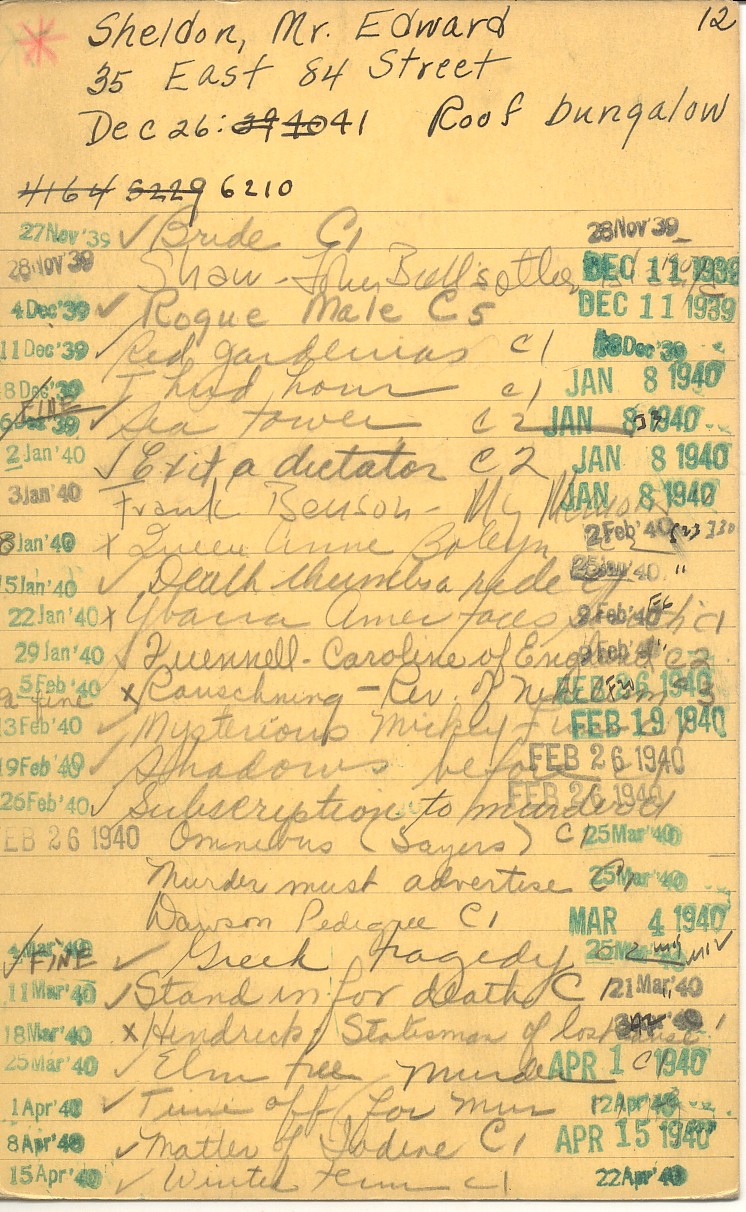 Sheldon, Mr. Edward 12
35 East 84 Street
Dec 26: 39 40 41 Roof bungalow
4164 5229 6210
27 Nov '39 ✓ Bride C1 28 Nov '39
28 Nov '39 Shaw - John Bull's other DEC 11 1939
4 Dec '39 ✓ Rogue Male C5 DEC 11 1939
11 Dec '39 ✓ Red gardenias C1 18 Dec '39
8 Dec '39 Third hour C1 JAN 8 1940
FINE ✓ Sea tower C2 JAN 8 1940
2 Jan '40 ✓ Exit a dictator C2 JAN 8 1940
3 Jan '40 Frank Benson - My Memoirs JAN 8 1940
8 Jan '40 x Queen Anne Boleyn 2 Feb '40
15 Jan '40 ✓ Death thumbs a ride C1 25 Jan '40 "
22 Jan '40 x Ybarra Amer faces C1 9 Feb '40
29 Jan '40 ✓ Quennell - Caroline of England C2 9 Feb '40
5 Feb '40 x Rauschning - Rev. of Nihilism 3 FEB 26 1940
fine
13 Feb '40 ✓ Mysterious Mickey Finn FEB 19 1940
19 Feb '40 ✓ Shadows before FEB 26 1940
26 Feb '40 ✓ Subscription to murder C1 FEB 26 1940
FEB 26 1940 Omnibus (Sayers) C1 25 Mar '40
Murder must advertise C1 25 Mar '40
Dawson Pedigree C1 MAR 4 1940
4 Mar '40 ✓ FINE ✓ Greek tragedy 25 Mar '40
11 Mar '40 ✓ Stand in for death C1 21 Mar '40
18 Mar '40 x Hendrick, Statesman of lost cause 1
25 Mar '40 ✓ Elm tree murder C1 APR 1 1940
1 Apr '40 ✓ Time off for mur 12 Apr '40
8 Apr '40 ✓ Matter of Iodine C1 APR 15 1940
15 Apr '40 ✓ Winter term C1 22 Apr '40